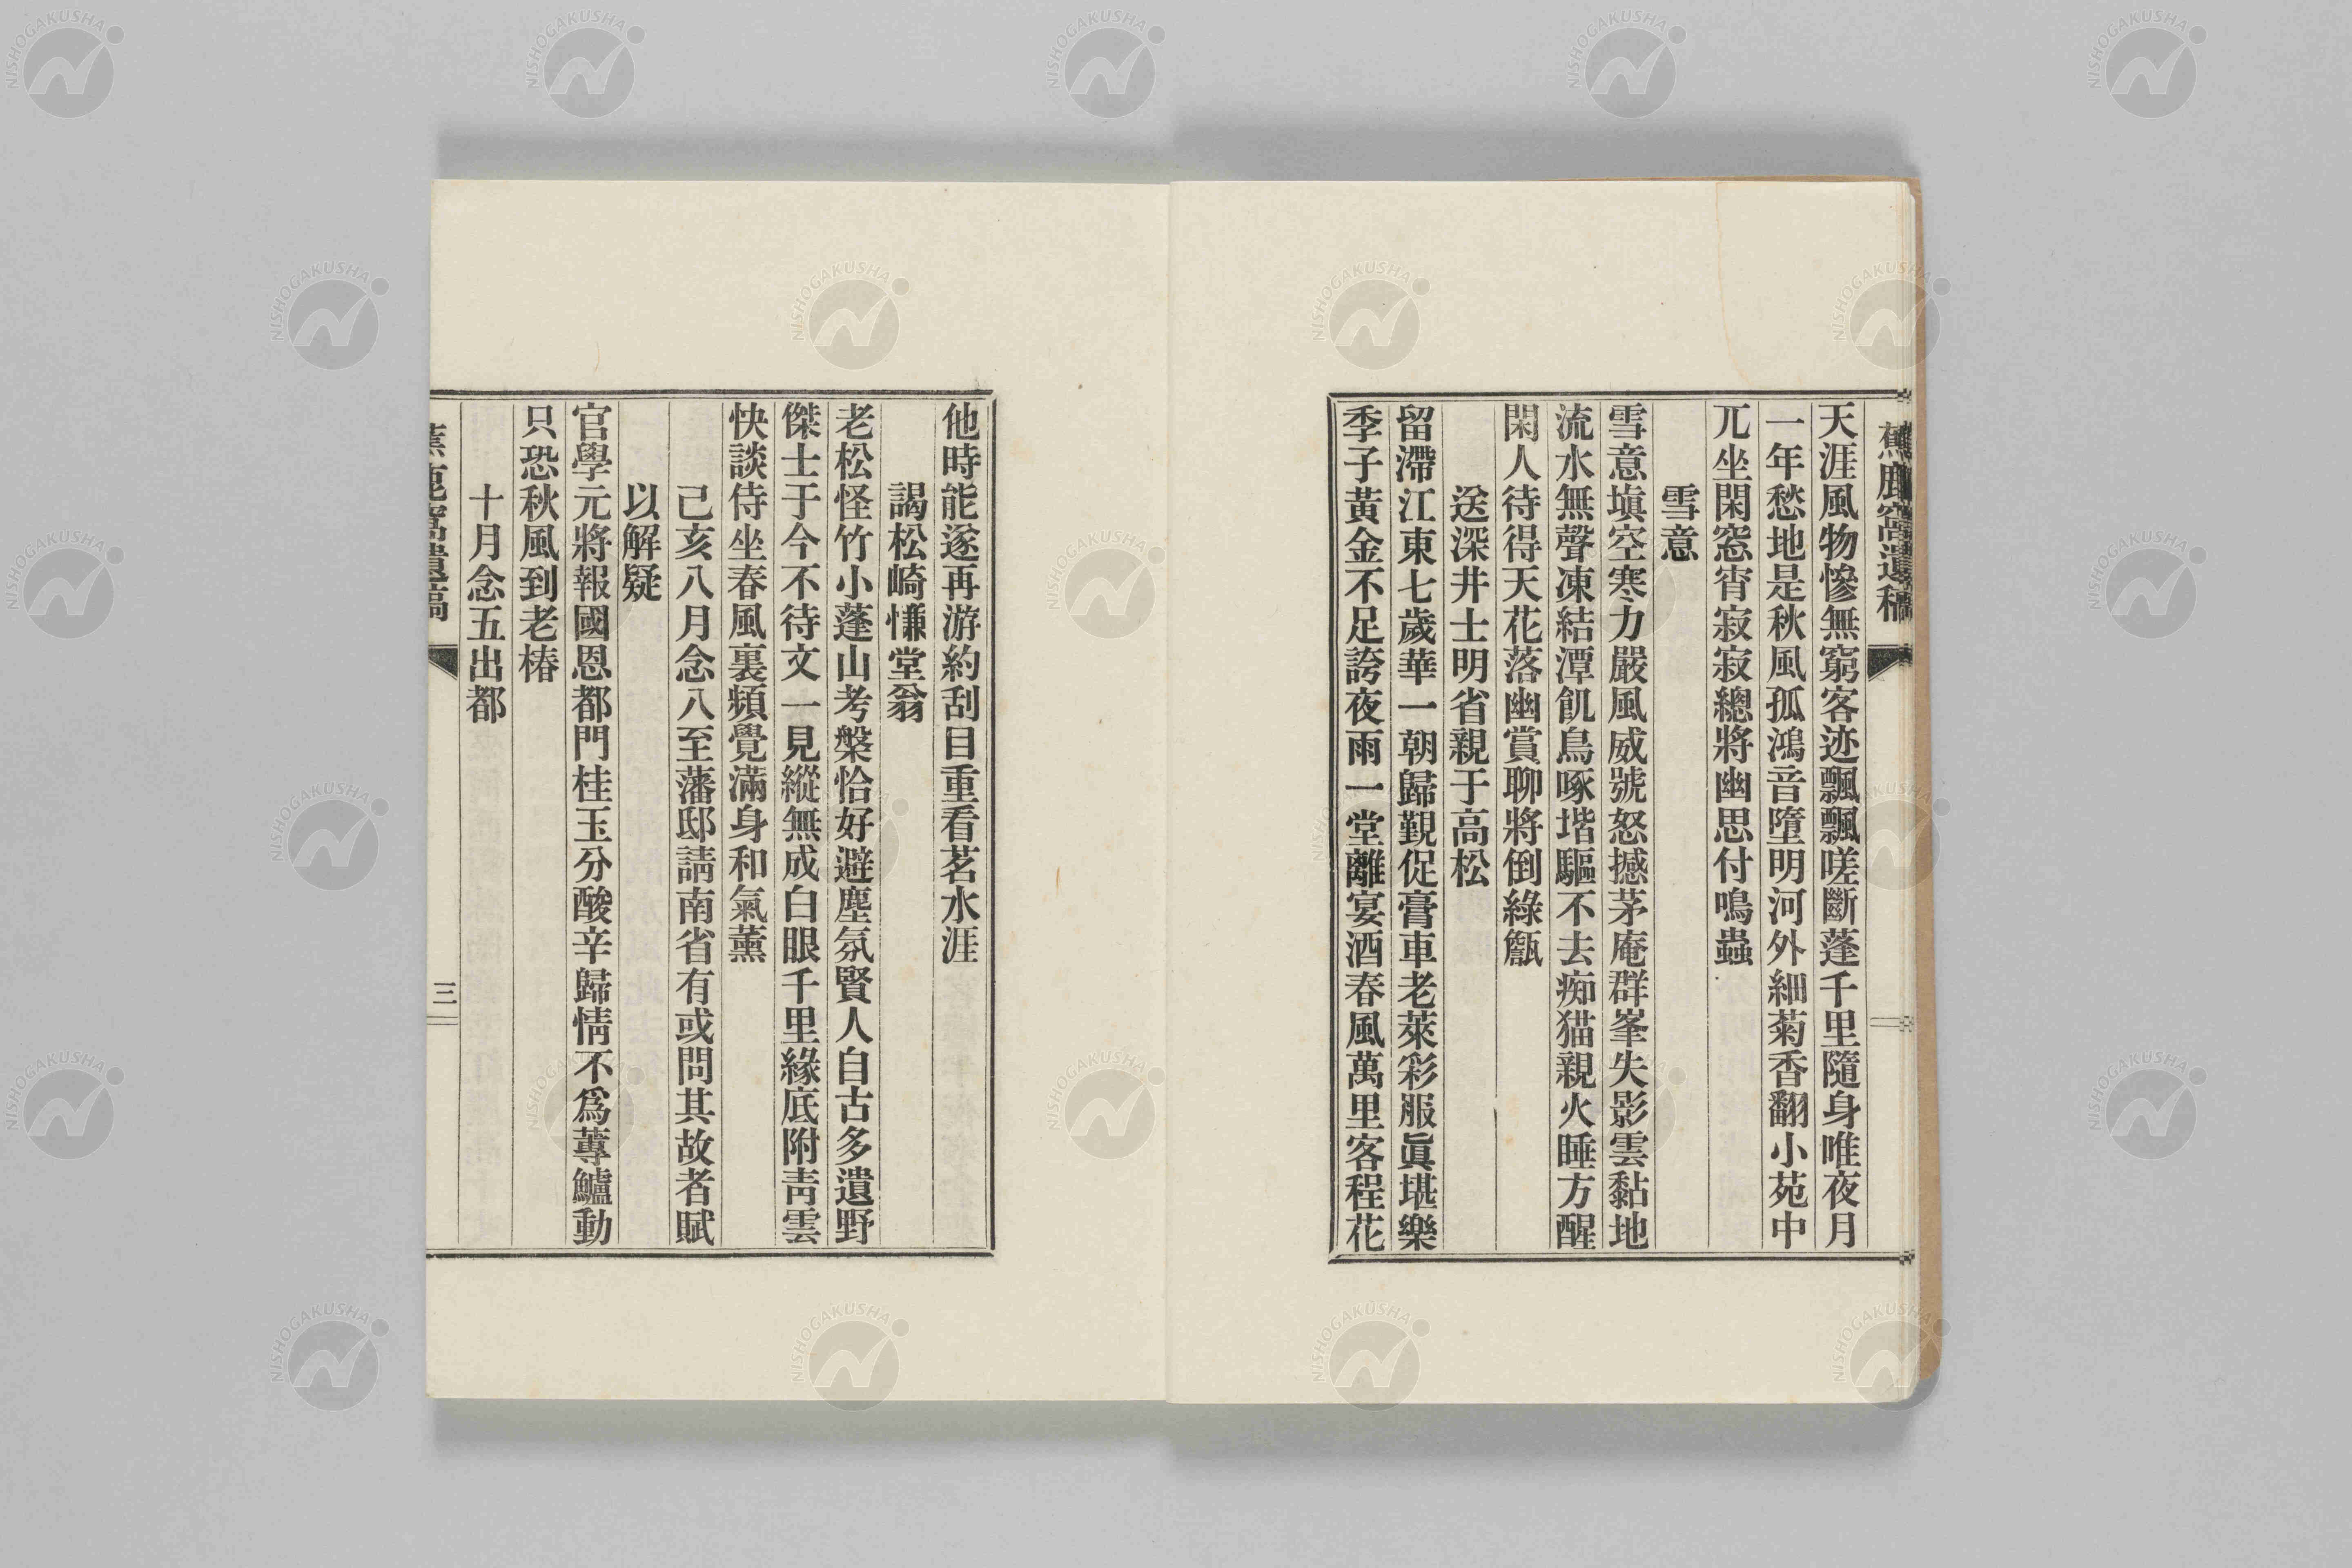 蕉鹿窩遺稿
天涯風物慘無窮客迹飄飄嗟斷蓬千里隨身唯夜月
一年愁地是秋風孤鴻音墮明河外細菊香翻小苑中
兀坐閑窓宵寂寂總將幽思付鳴蟲
雪意
雪意塡空寒力嚴風威號怒撼茅庵群峯失影雲黏地
流水無聲凍結潭飢鳥啄堦驅不去痴猫親火睡方醒
閑人待得天花落幽賞聊將倒綠甔
送深井士明省親于高松
留滯江東七歲華一朝歸覲促膏車老萊彩服眞堪樂
季子黃金不足誇夜雨一堂離宴酒春風萬里客程花
他時能遂再游約刮目重看茗水涯
謁松崎慊堂翁
老松怪竹小蓬山考槃恰好避塵氛賢人自古多遺野
傑士于今不待文一見縱無成白眼千里緣底附靑雲
快談侍坐春風裏頻覺滿身和氣薰
己亥八月念八至藩邸請南省有或問其故者賦
以解疑
官學元將報國恩都門桂玉分酸辛歸情不爲蓴鱸動
只恐秋風到老椿
十月念五出都
蕉鹿窩遺稿
三
NISHOGAKUSHA